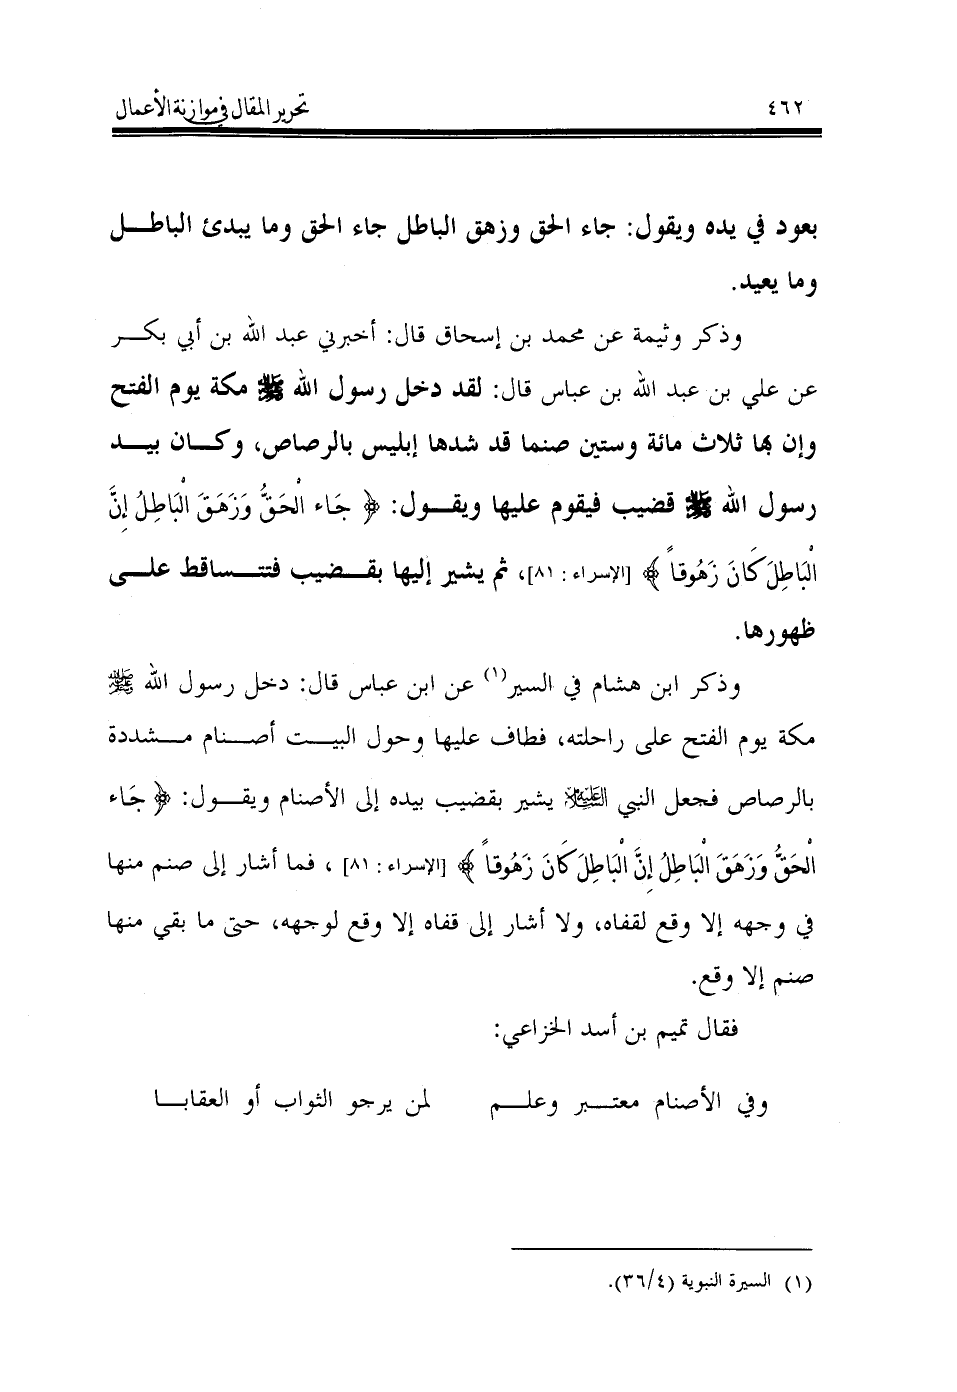 ٤٦٢ تحرير المقال في موازنة الأعمال
بعود في يده ويقول: جاء الحق وزهق الباطل جاء الحق وما يبدئ الباطـــل
وما يعيد.
وذكر وثيمة عن محمد بن إسحاق قال: أخبرني عبد الله بن أبي بكـــر
عن علي بن عبد الله بن عباس قال: لقد دخل رسول الله ﷺ مكة يوم الفتح
وإن بها ثلاث مائة وستين صنما قد شدها إبليس بالرصاص، وكـــان بيـــد
رسول الله ﷺ قضيب فيقوم عليها ويقـــول: ﴿ جَاء الْحَقُّ وَزَهَقَ الْبَاطِلُ إِنَّ
الْبَاطِلَ كَانَ زَهُوقاً ﴾ [الإسراء : ٨١]، ثم يشير إليها بقـــضيب فتتـــساقط علـــى
ظهورها.
وذكر ابن هشام في السير(١) عن ابن عباس قال: دخل رسول الله ﷺ
مكة يوم الفتح على راحلته، فطاف عليها وحول البيـــت أصـــنام مـــشددة
بالرصاص فجعل النبي العَلَيْهِ السَّلام يشير بقضيب بيده إلى الأصنام ويقـــول: ﴿ جَاء
الْحَقُّ وَزَهَقَ الْبَاطِلُ إِنَّ الْبَاطِلَ كَانَ زَهُوقاً ﴾ [الإسراء : ٨١] ، فما أشار إلى صنم منها
في وجهه إلا وقع لقفاه، ولا أشار إلى قفاه إلا وقع لوجهه، حتى ما بقي منها
صنم إلا وقع.
فقال تميم بن أسد الخزاعي:
وفي الأصنام معتـــبر وعلـــم لمن يرجو الثواب أو العقابـــا
(١) السيرة النبوية (٣٦/٤).